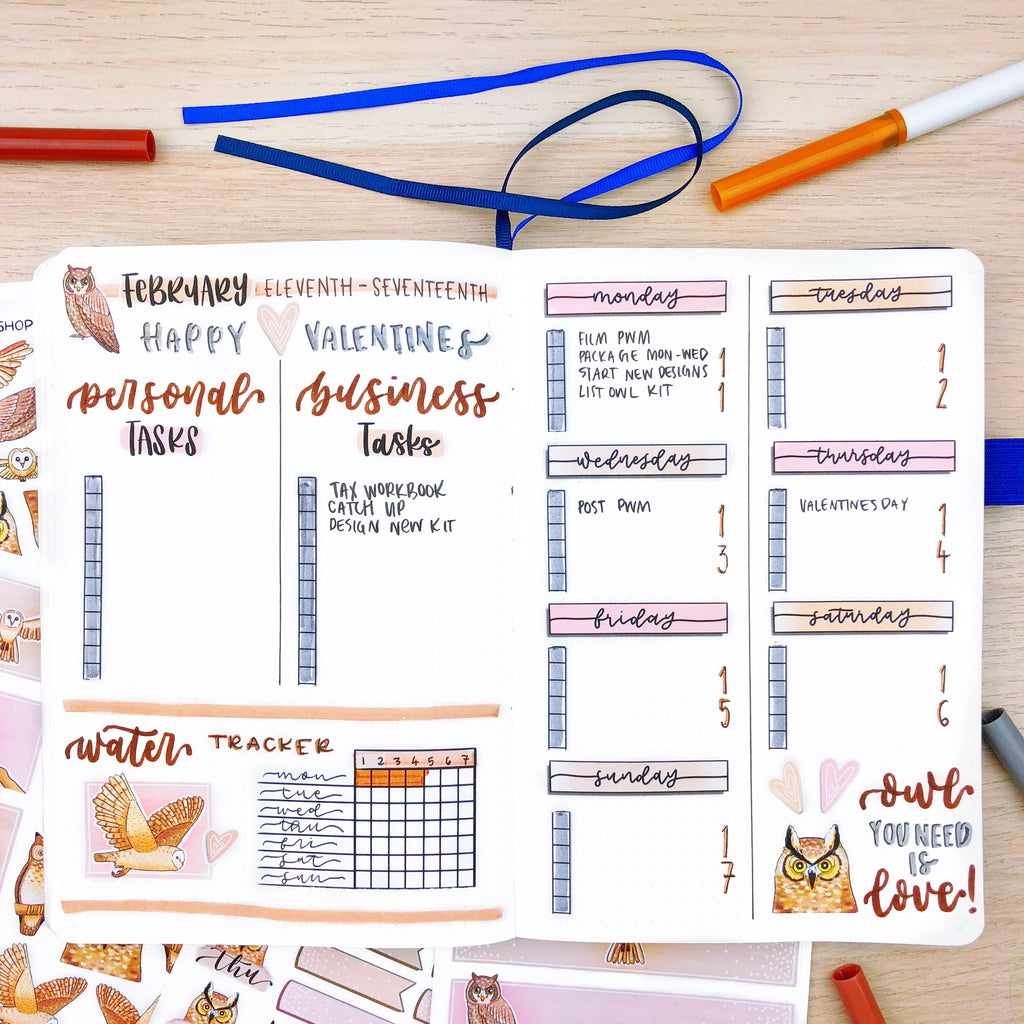 SHOP
FEBRUARY ELEVENTH - SEVENTEENTH
HAPPY VALENTINES
personal
TASKS
business
Tasks
TAX WORKBOOK
CATCH UP
DESIGN NEW KIT
water TRACKER
1 2 3 4 5 6 7
mon
tue
wed
thu
fri
sat
sun
monday
FILM PWM
PACKAGE MON-WED
START NEW DESIGNS
LIST OWL KIT
1
1
tuesday
1
2
wednesday
POST PWM
1
3
thursday
VALENTINES DAY
1
4
friday
1
5
saturday
1
6
sunday
1
7
owl
YOU NEED
IS
love!
thu